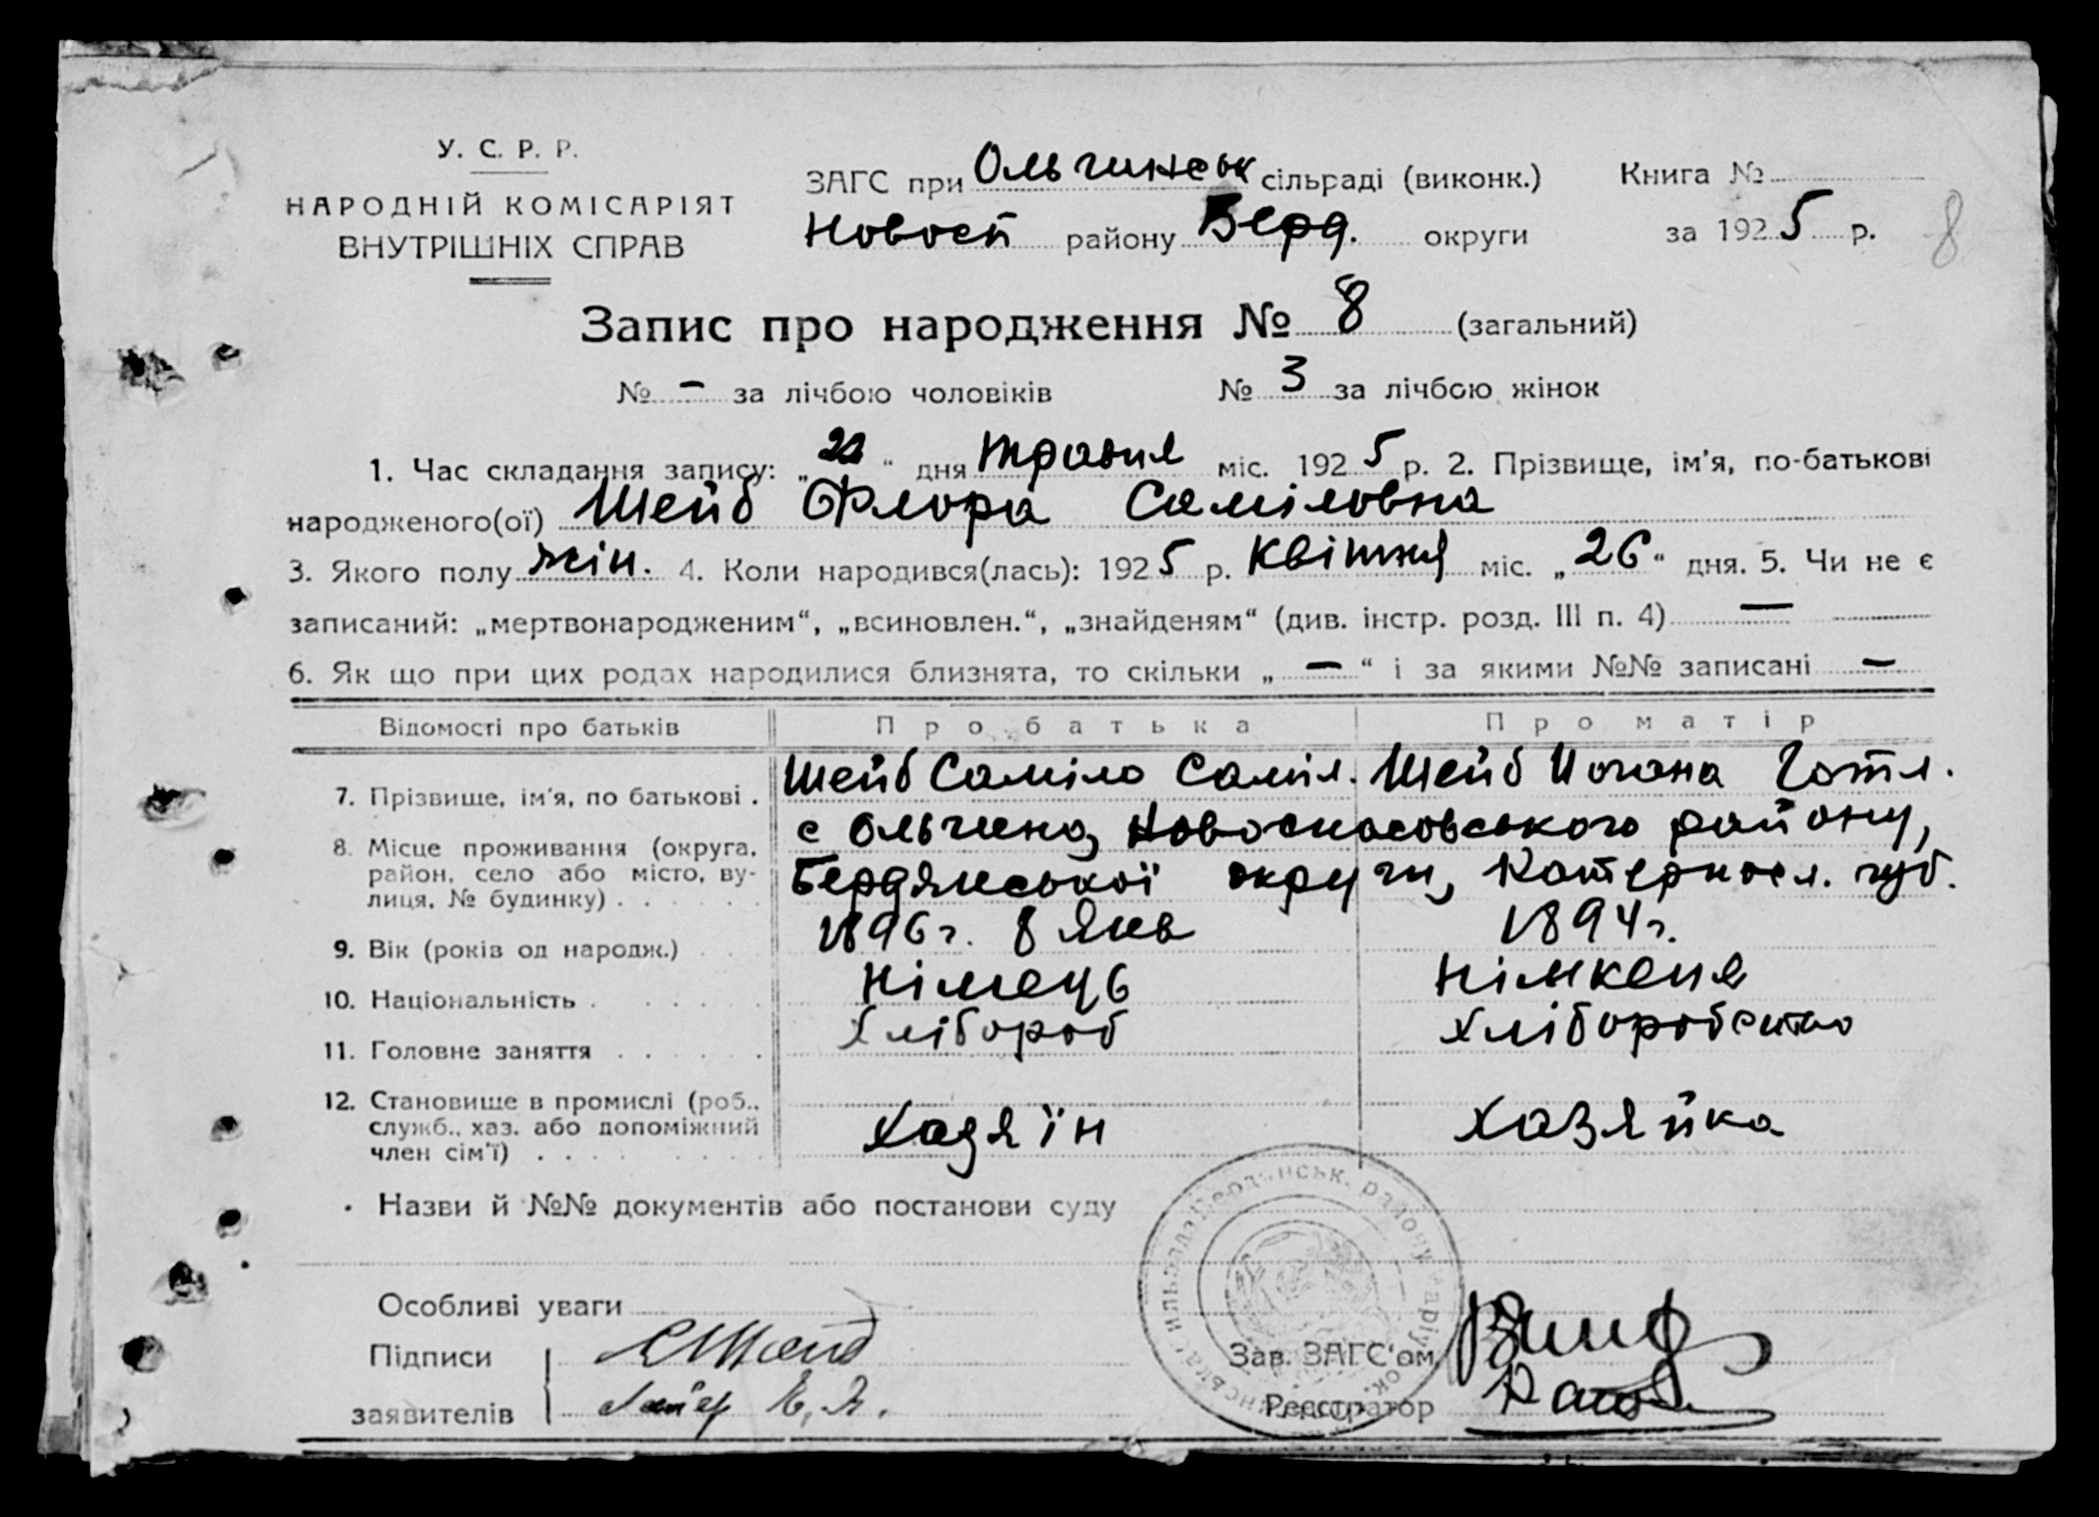 У. С. Р. Р.
НАРОДНІЙ КОМІСАРІЯТ
ВНУТРІШНІХ СПРАВ
ЗАГС при Ольгинськ сільраді (виконк.)
Новосп району Берд. округи
Книга №
за 1925 р.
8
Запис про народження № 8 (загальний)
№ – за лічбою чоловіків № 3 за лічбою жінок
1. Час складання запису: „22“ дня травня міс. 1925 р. 2. Прізвище, ім'я, по-батькові
народженого(ої) Шейб Флора Саміловна
3. Якого полу жін. 4. Коли народився(лась): 1925 р. Квітня міс. „26“ дня. 5. Чи не є
записаний: „мертвонародженим“, „всиновлен.“, „знайденям“ (див. інстр. розд. III п. 4) —
6. Як що при цих родах народилися близнята, то скільки „—“ і за якими №№ записані —
Відомості про батьків Про батька Про матір
7. Прізвище, ім'я, по батькові . Шейб Саміло Саміл. Шейб Иогана Готл.
8. Місце проживання (округа, район, село або місто, вулиця, № будинку) . . . . . .
с Ольгино, Новоспасовського району,
Бердянської округи, Катериносл. губ.
9. Вік (років од народж.) . . 1896 г. 8 Янв 1894 г.
10. Національність . . . . . Німець Німкеня
11. Головне заняття . . . . . Хлібороб Хліборобство
12. Становище в промислі (роб., служб., хаз. або допоміжний член сім'ї) . . . . . . . . Хазяїн Хазяйка
Назви й №№ документів або постанови суду
Особливі уваги
Підписи
заявителів
Зав. ЗАГС'ом
Реєстратор